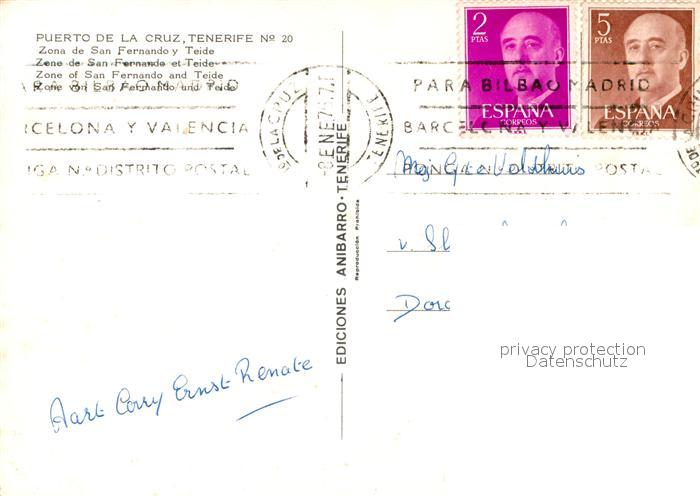 PUERTO DE LA CRUZ, TENERIFE Nº 20
Zona de San Fernando y Teide
Zone de San Fernando et Teide
Zone of San Fernando and Teide
Zone von San Fernando und Teide
BILBAO MADRID
RCELONA Y VALENCIA
NGA Nº DISTRITO POSTAL
DE LA CRUZ
TENERIFE
EDICIONES ANIBARRO - TENERIFE
Reproducción Prohibida
2 PTAS
ESPAÑA
CORREOS
5 PTAS
ESPAÑA
CORREOS
PARA BILBAO MADRID
BARCELONA Y VALENCIA
PONGA Nº DISTRITO POSTAL
v. Sl
Dorc
privacy protection
Datenschutz
Aart Corry Ernst Renate